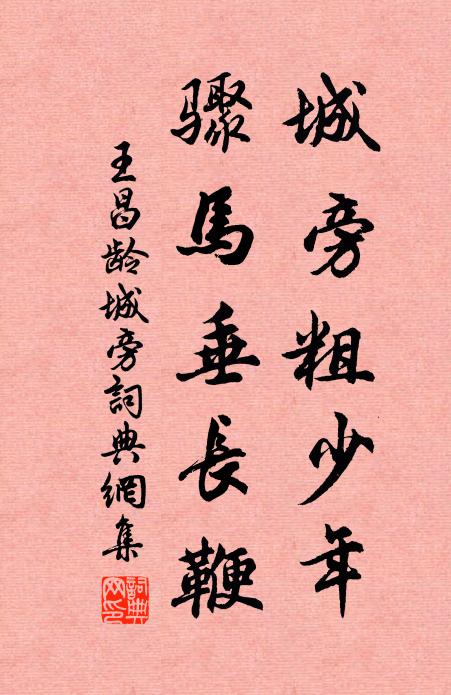 城旁粗少年
驟馬垂長鞭
王昌龄城旁詞典網集
詞典網印